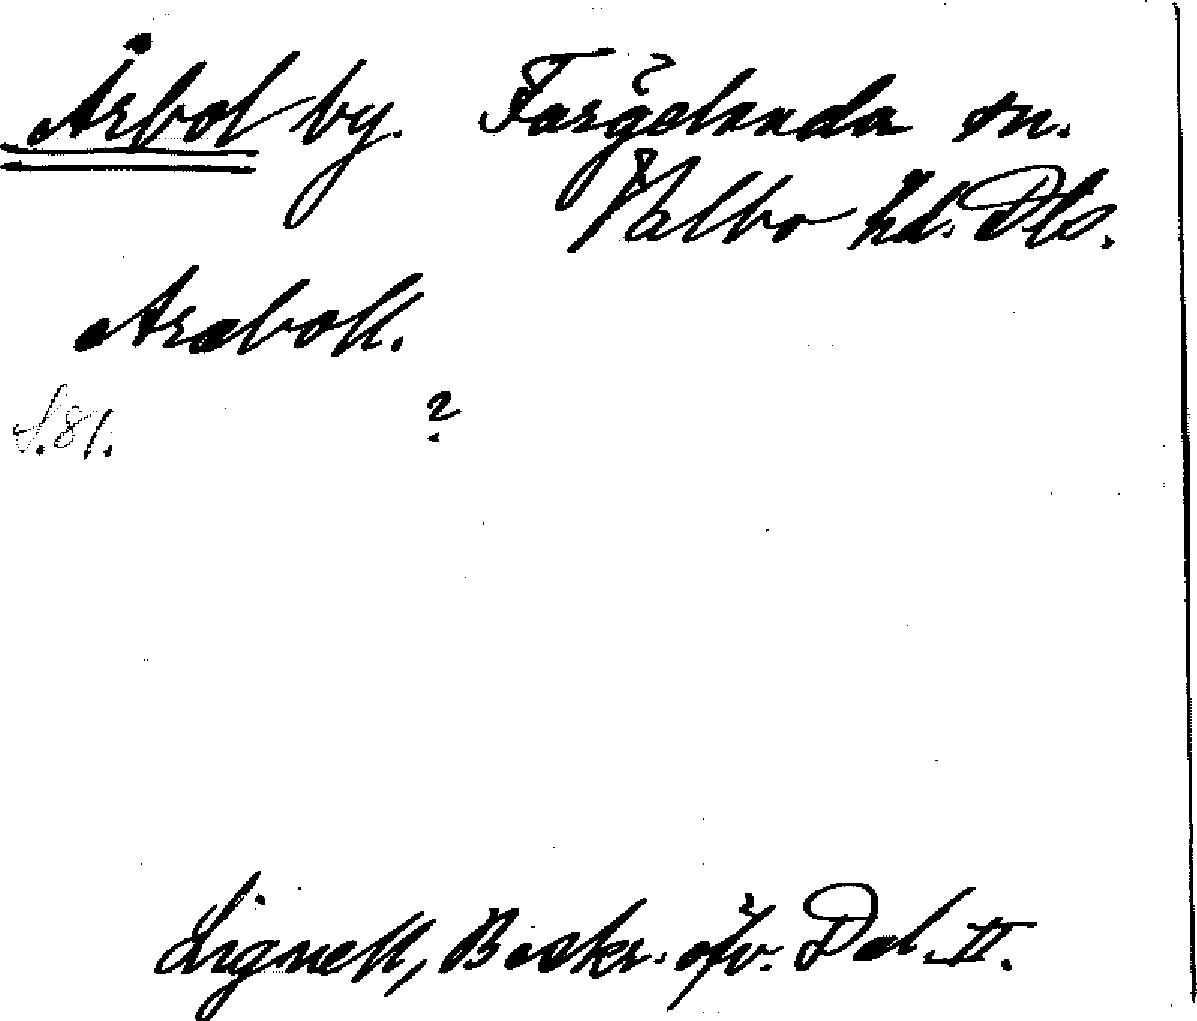 Årbol by. Färgelanda sn.
Valbo hd. Dls.
Araboll.
S. 81. ?
Lignell, Beskr. öfv. Dal. II.